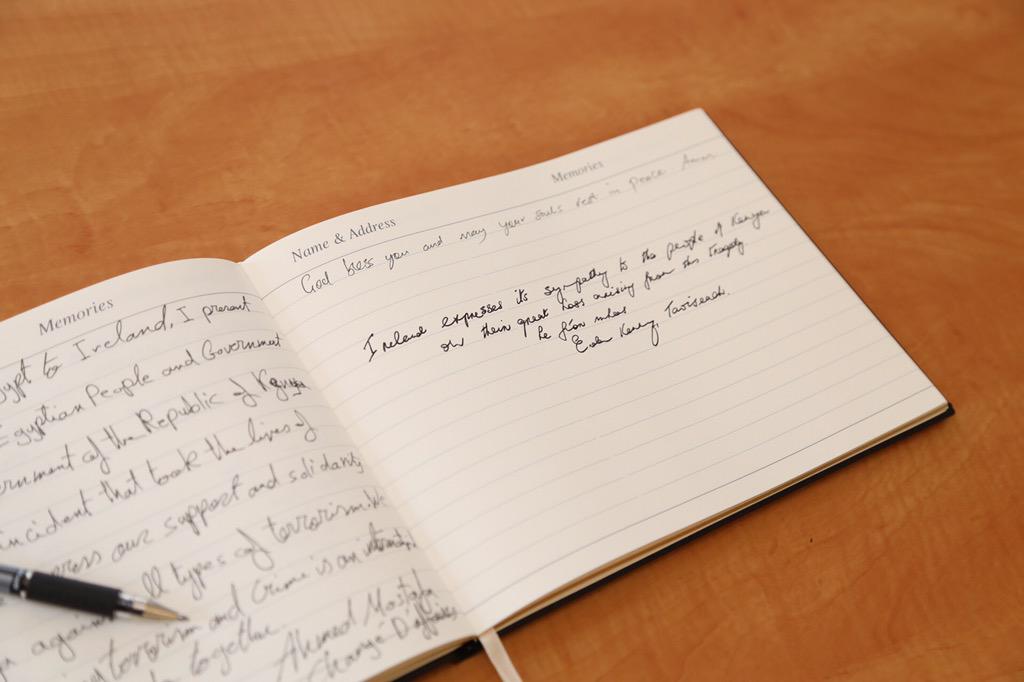 Memories
gypt to Ireland, I present
Egyptian People and Government
ernment of the Republic of Kenya
incident that took the lives of
ress our support and solidarity
against all types of terrorism
terrorism and Crime is an
together.
Ahmed Mostafa
Chargé D'affaires
Name & Address
Memories
God bless you and may your souls rest in peace Amen
Ireland expresses its sympathy to the people of Kenya
on their great loss arising from this tragedy
le
Enda Kenny, Taoiseach.